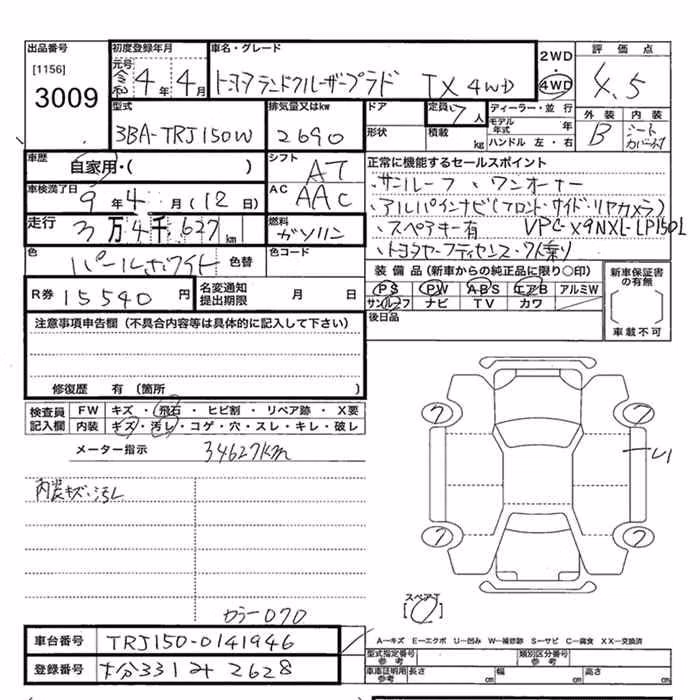 出品番号 [1156] 3009
初度登録年月 元号 令和 4年 4月
車名・グレード トヨタランドクルーザープラド TX 4WD
2WD・4WD
評価点 4.5
外装 B 内装 シートカバー
型式 3BA-TRJ150W
排気量又はkw 2690
ドア 形状
定員 7人 積載 kg
ディーラー・並行
モデル年式 年
ハンドル 左・右
車歴 自家用・( )
シフト AT
車検満了日 9年 4月 (12日)
AC AAC
走行 3万4千627km
燃料 ガソリン
色 パールホワイト 色替
色コード
R券 15540円
名変通知提出期限 月 日
正常に機能するセールスポイント
・サンルーフ ・ワンオーナー
・アルパインナビ(フロント・サイド・リヤカメラ)
・スペアキー有 VPC-X9NXL-LP150L
・トヨタセーフティセンス・7人乗り
装備品(新車からの純正品に限り○印)
PS PW ABS エアB アルミW
サンルーフ ナビ TV カワ
後日品
新車保証書の有無
車載不可
注意事項申告欄(不具合内容等は具体的に記入して下さい)
修復歴 有 (箇所 )
検査員記入欄
FW キズ・飛石・ヒビ割・リペア跡・X要
内装 キズ・汚レ・コゲ・穴・スレ・キレ・破レ
メーター指示 34627km
内装キズ・汚レ
カラー070
7
7
U1
7
7
スペアT [0]
A―キズ E―エクボ U―凹み W―補修跡 S―サビ C―腐食 XX―交換済
車台番号 TRJ150-0141946
登録番号 大分331 み 2628
型式指定番号 参考
類別区分番号 参考
車庫証明用 参考 長さ cm 幅 cm 高さ cm